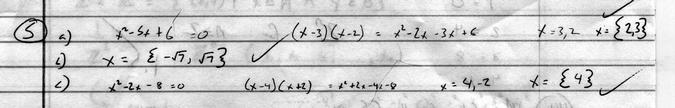 5 a) x²-5x+6=0 (x-3)(x-2) = x²-2x-3x+6 x=3,2 x={2,3}
b) x = {-√7, √7} ✓
c) x²-2x-8=0 (x-4)(x+2) = x²+2x-4x-8 x=4,-2 x={4} ✓